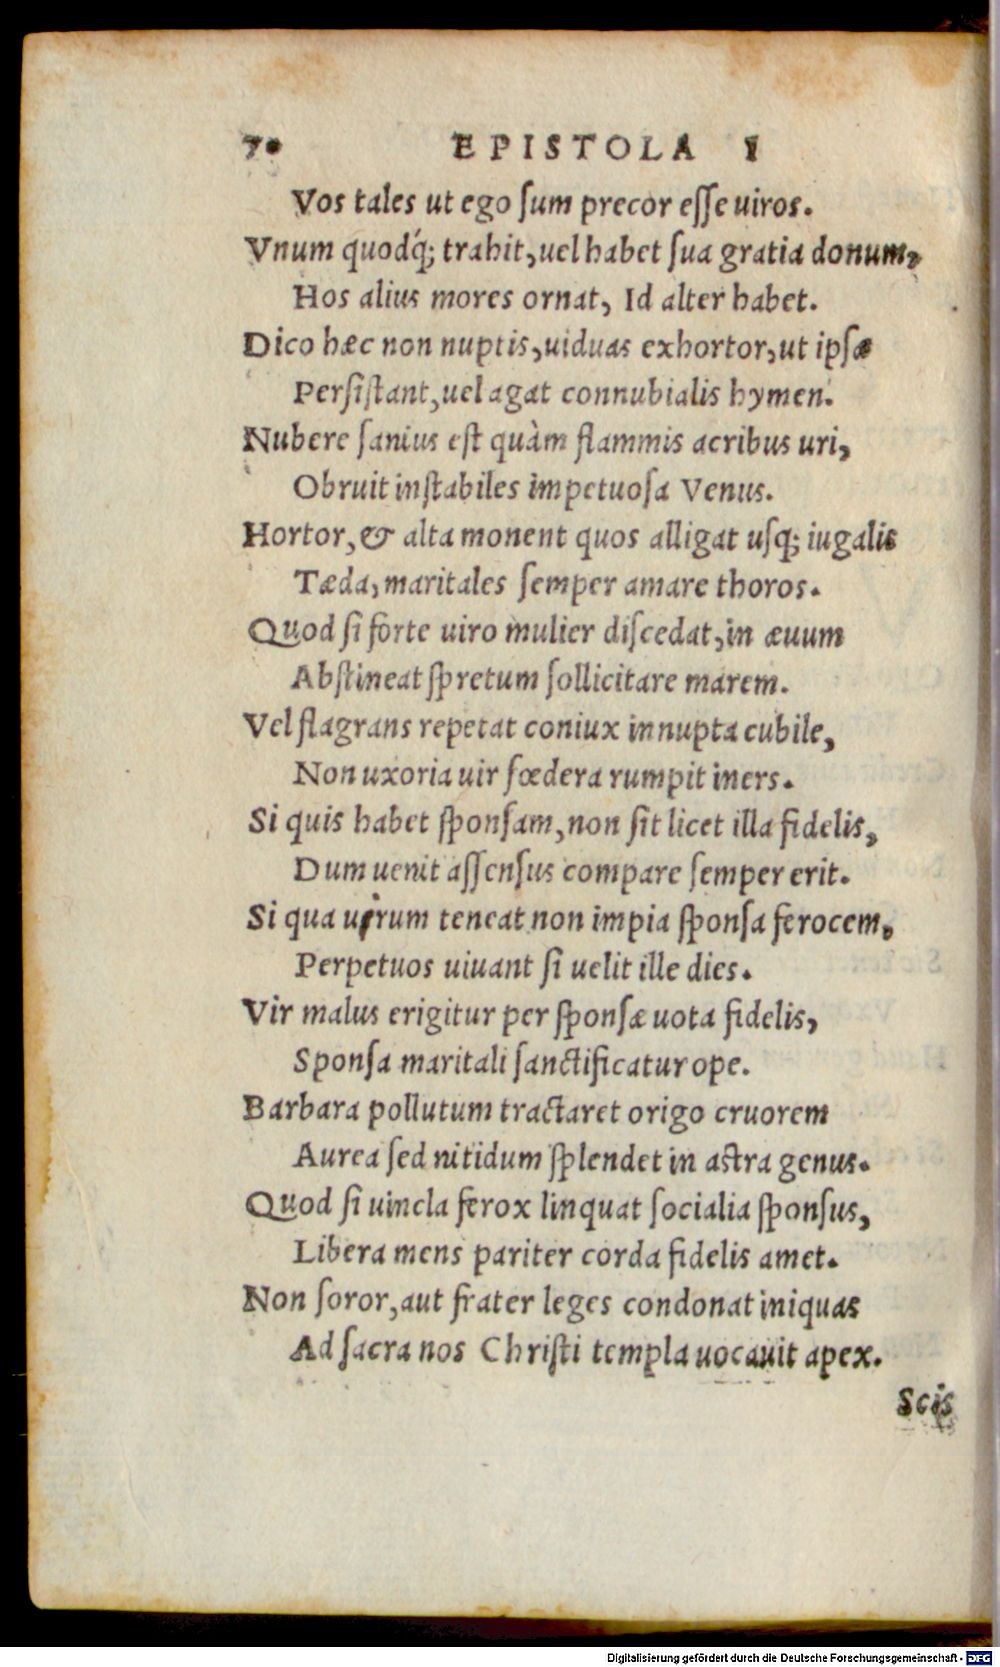 70 EPISTOLA I
Vos tales ut ego ſum precor eſſe uiros.
Vnum quodq́; trahit, uel habet ſua gratia donum,
Hos alius mores ornat, Id alter habet.
Dico hæc non nuptis, uiduas exhortor, ut ipſæ
Perſiſtant, uel agat connubialis hymen.
Nubere ſanius eſt quàm flammis acribus uri,
Obruit inſtabiles impetuoſa Venus.
Hortor, & alta monent quos alligat uſq; iugalis
Tæda, maritales ſemper amare thoros.
Quod ſi forte uiro mulier diſcedat, in æuum
Abſtineat ſpretum ſollicitare marem.
Vel flagrans repetat coniux innupta cubile,
Non uxoria uir fœdera rumpit iners.
Si quis habet ſponſam, non ſit licet illa fidelis,
Dum uenit aſſenſus compare ſemper erit.
Si qua uirum teneat non impia ſponſa ferocem,
Perpetuos uiuant ſi uelit ille dies.
Vir malus erigitur per ſponſæ uota fidelis,
Sponſa maritali ſanctificatur ope.
Barbara pollutum tractaret origo cruorem
Aurea ſed nitidum ſplendet in aſtra genus.
Quod ſi uincla ferox linquat ſocialia ſponſus,
Libera mens pariter corda fidelis amet.
Non ſoror, aut frater leges condonat iniquas
Ad ſacra nos Chriſti templa uocauit apex.
Scis
Digitalisierung gefördert durch die Deutsche Forschungsgemeinschaft - DFG